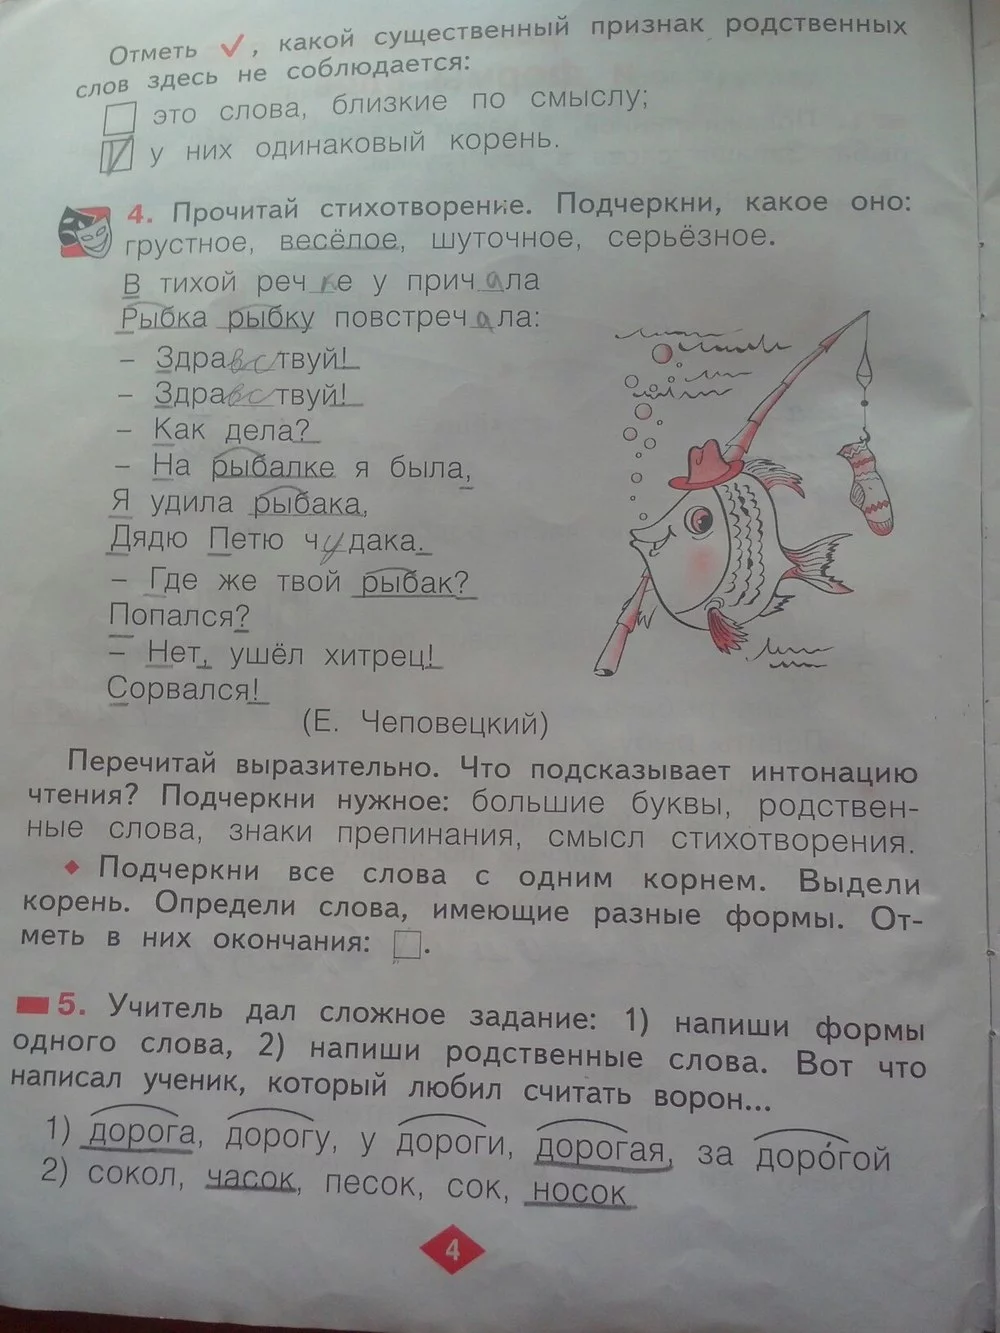 Отметь ✓, какой существенный признак родственных
слов здесь не соблюдается:
это слова, близкие по смыслу;
у них одинаковый корень.
4. Прочитай стихотворение. Подчеркни, какое оно:
грустное, весёлое, шуточное, серьёзное.
В тихой речке у причала
Рыбка рыбку повстречала:
– Здравствуй!
– Здравствуй!
– Как дела?
– На рыбалке я была,
Я удила рыбака,
Дядю Петю чудака.
– Где же твой рыбак?
Попался?
– Нет, ушёл хитрец!
Сорвался!
(Е. Чеповецкий)
Перечитай выразительно. Что подсказывает интонацию
чтения? Подчеркни нужное: большие буквы, родствен-
ные слова, знаки препинания, смысл стихотворения.
♦ Подчеркни все слова с одним корнем. Выдели
корень. Определи слова, имеющие разные формы. От-
меть в них окончания: □.
5. Учитель дал сложное задание: 1) напиши формы
одного слова, 2) напиши родственные слова. Вот что
написал ученик, который любил считать ворон...
1) дорога, дорогу, у дороги, дорогая, за доро́гой
2) сокол, часок, песок, сок, носок
4